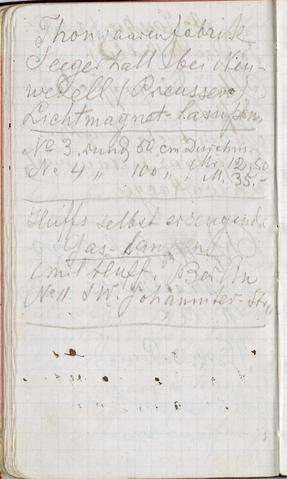 Thonwaarenfabrik
Seegerhall bei Neu-
wedell (Preussen)
Lichtmagnet-Lampen
No 3. rund 60 cm Durchm.
No 4 " 100 " M. 35.-
Mr. 12,50
Huffs selbst erzeugende
Gas-Lampen
Emil Huff, Berlin
No 11. SW. Johanniter-Str.